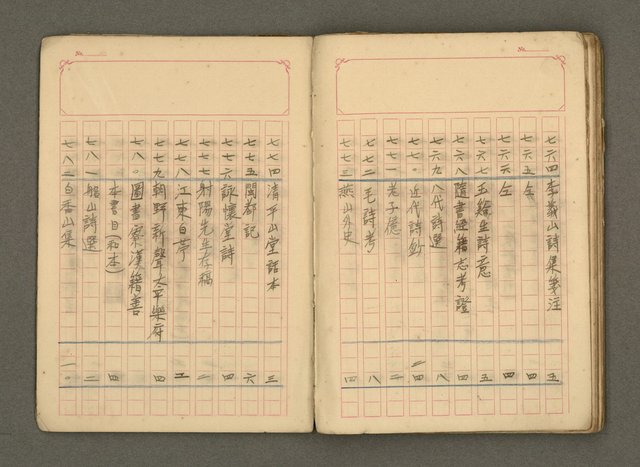 七六四 李義山詩集箋注 五
七六五 仝 四
七六六 仝 四
七六七 玉谿生詩意 五
七六八 隋書經籍志考證 四
七六九 八代詩選 八
七七〇 近代詩鈔 二四
七七一 老子億 二
七七二 毛詩考 八
七七三 燕山外史 四
七七四 清平山堂話本 三
七七五 閩都記 六
七七六 詠懷堂詩 四
七七七 射陽先生存稿 二
七七八 江東白苧 二
七七九 朝野新聲太平樂府 四
七八〇 圖書寮漢籍善
本書目(和本) 四
七八一 船山詩選 二
七八二 白香山集 一〇
No.
No.